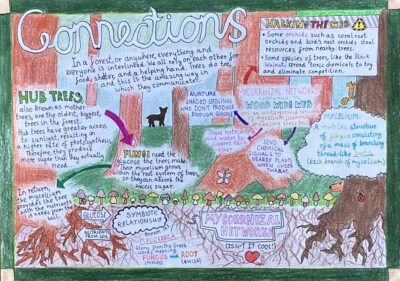 Connections
In a forest, or anywhere, everything and
everyone is interlinked. We all rely on each other for
food, shelter and a helping hand. Trees do too,
and this is the amazing way in
which they communicate!
HACKING THE WEB
• Some orchids such as coralroot
orchids and bird's nest orchids steal
resources from nearby trees.
• Some species of trees, like the Black
Walnut, spread toxic chemicals to try
and eliminate competition.
HUB TREES,
also known as mother
trees, are the oldest, biggest,
trees in the forest.
Hub trees have greater access
to sunlight, resulting in
a higher rate of photosynthesis.
Therefore, they produce
more sugar than they actually
need.
FUNGI need the
glucose the trees make.
Their mycelium grows
within the root system of trees,
so they can absorb the
excess sugar.
In return,
the mycelium
provides the tree
with the nutrients
it needs from the
GLUCOSE
NUTRIENTS
FROM SOIL
SYMBIOTIC
RELATIONSHIP
known as
MYCORRHIZA
Stems from the Greek
words meaning
FUNGUS and ROOT
(MYKOS) (RHIZA)
MYCORRHIZAL NETWORKS
WOOD WIDE WEB
MATURE
SHADED SEEDLINGS
MAY DON'T PRODUCE
ENOUGH
Share nutrients
SEND
CHEMICAL
SIGNALS TO
NEARBY PLANTS
WHEN UNDER
THREAT.
MYCELIUM:
A root-like structure
of fungus consisting
of a mass of branching
thread-like hyphae
(each branch of mycelium)
MYCORRHIZAL
NETWORKS
(ISN'T IT COOL!)